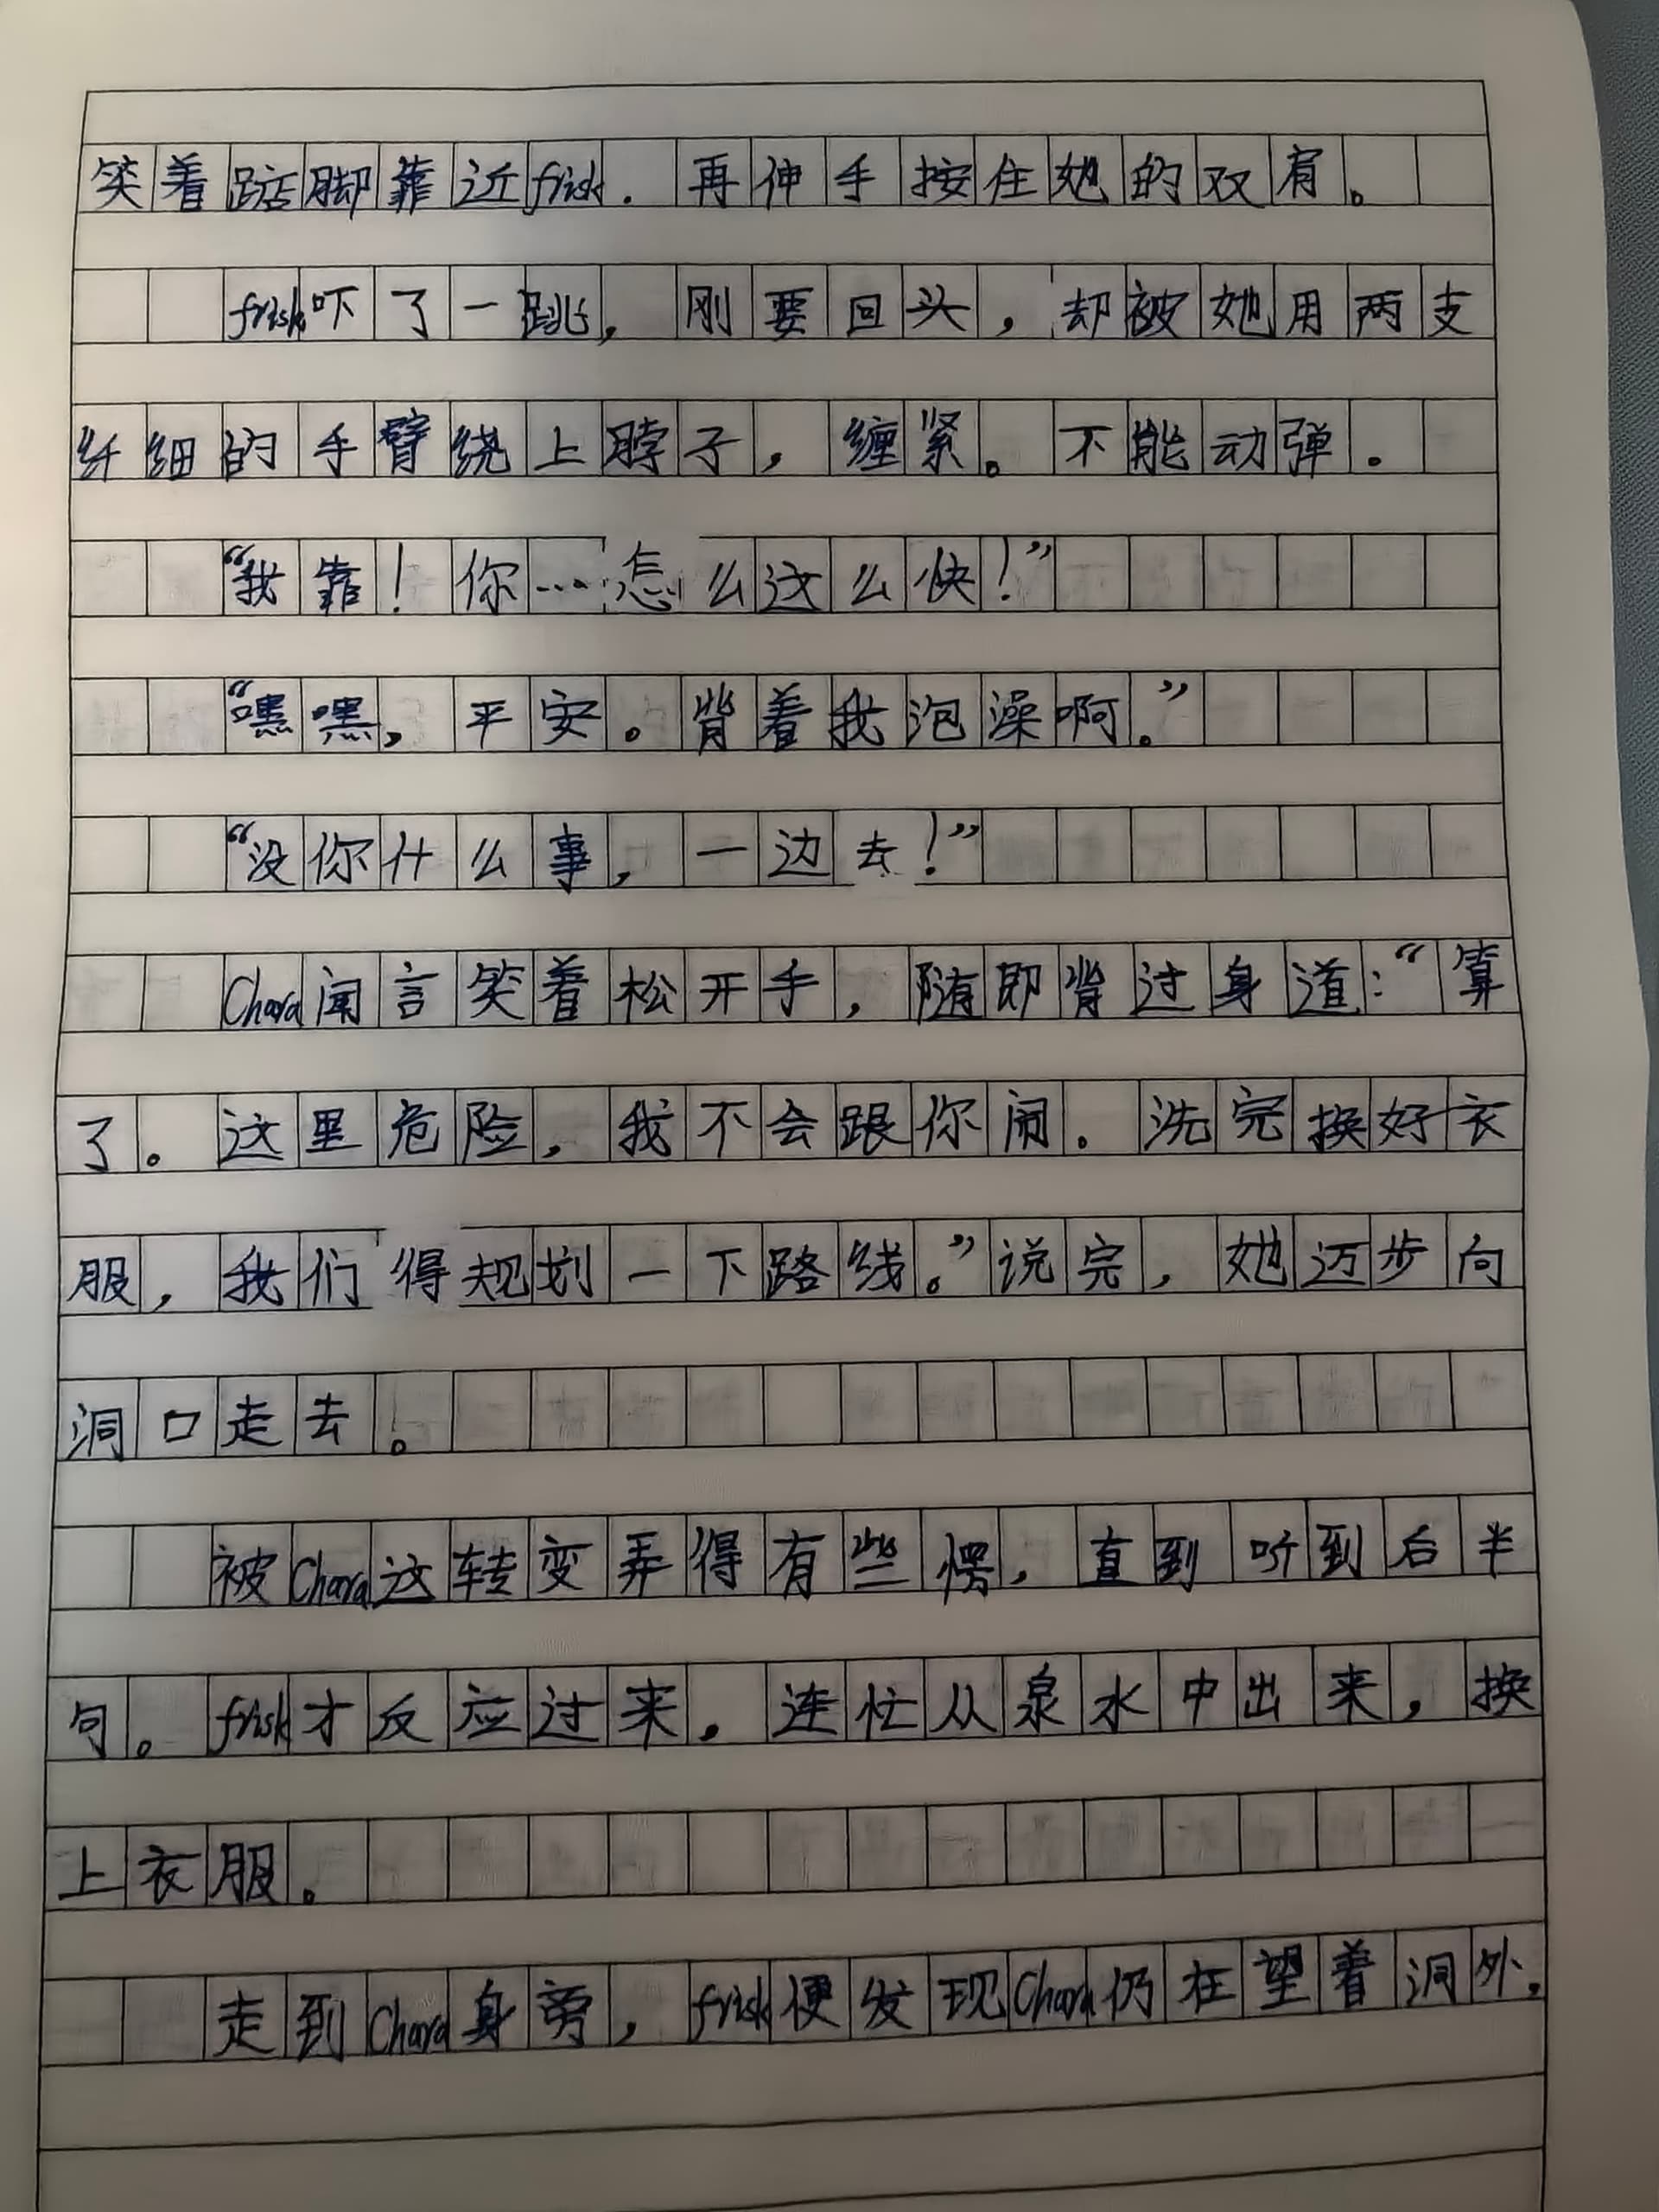 笑着踮脚靠近frisk.再伸手按住她的双肩。
frisk吓了一跳，刚要回头，却被她用两支
纤细的手臂绕上脖子，缠紧。不能动弹.
“我靠！你…怎么这么快！”
“嘿嘿，平安。背着我泡澡啊。”
“没你什么事，一边去！”
Chara闻言笑着松开手，随即背过身道：“算
了。这里危险，我不会跟你闹.洗完换好衣
服，我们得规划一下路线。”说完，她迈步向
洞口走去。
被Chara这转变弄得有些愣，直到听到后半
句。frisk才反应过来.连忙从泉水中出来，换
上衣服。
走到Chara身旁，frisk便发现Chara仍在望着洞外.